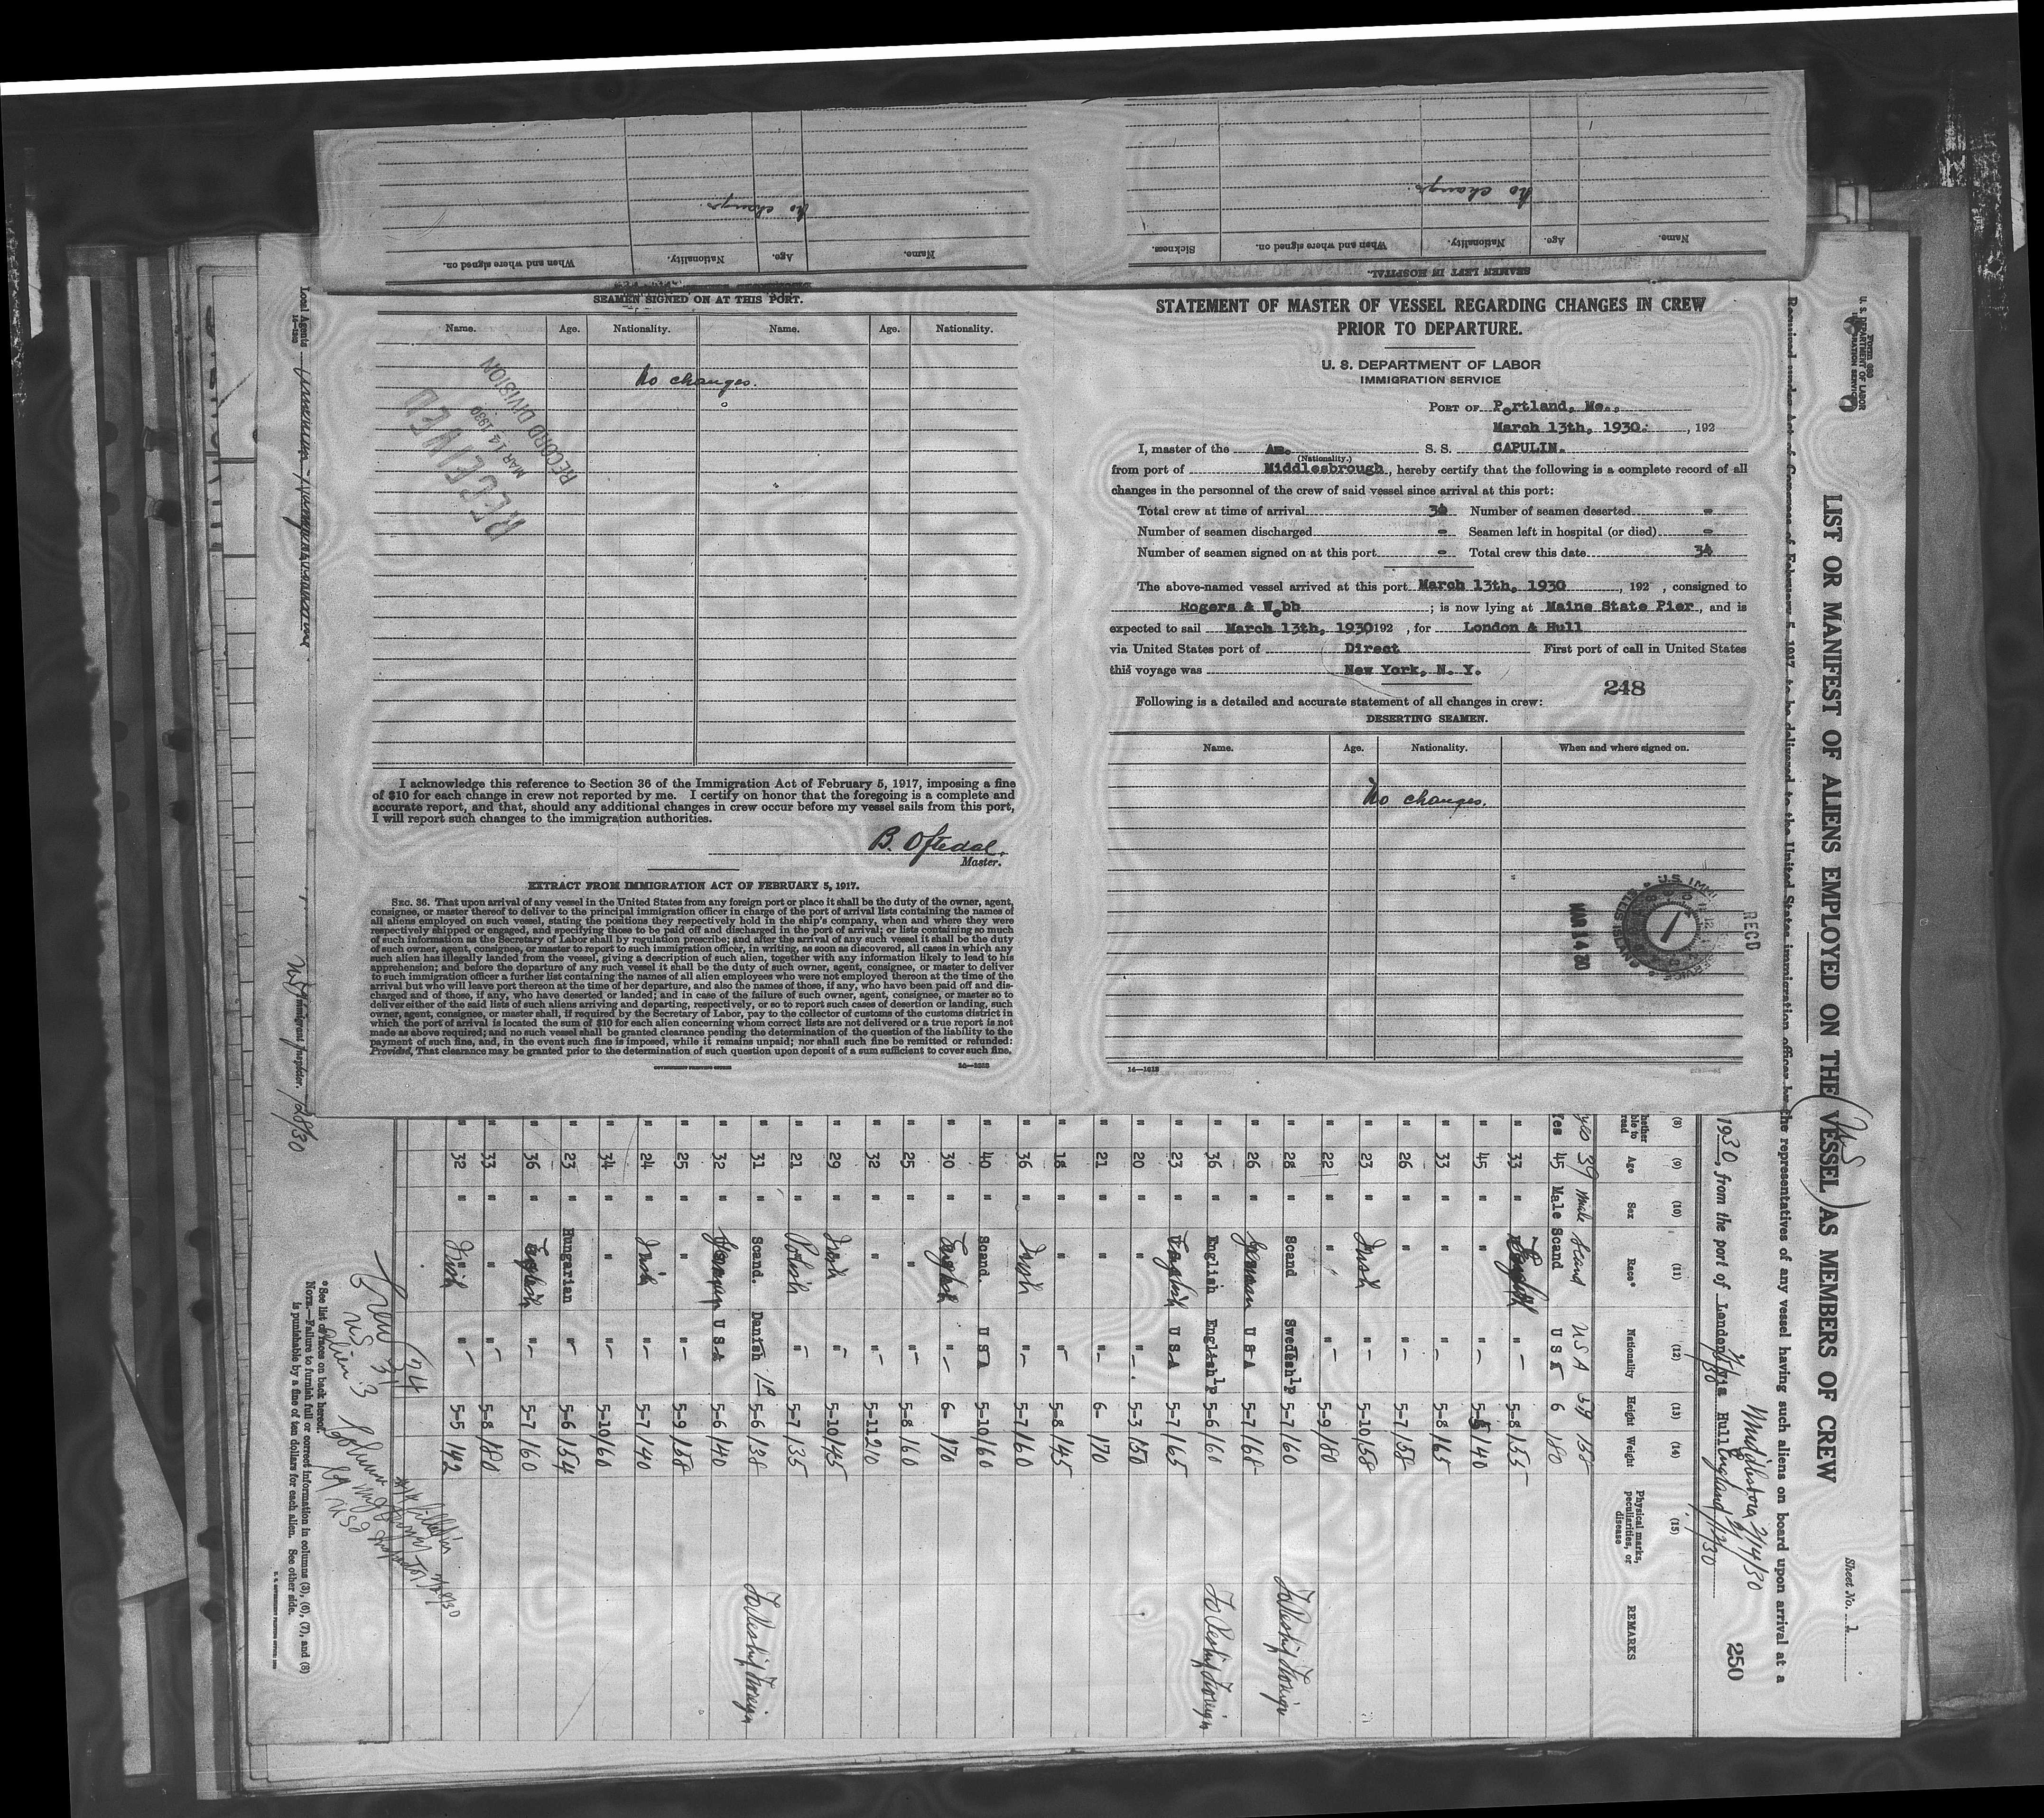 SEAMEN LEFT IN HOSPITAL.
Name.  Age.  Nationality.  When and where signed on.  Sickness.
No change.
Name.  Age.  Nationality.  When and where signed on.
No change.
STATEMENT OF MASTER OF VESSEL REGARDING CHANGES IN CREW
PRIOR TO DEPARTURE.
U. S. DEPARTMENT OF LABOR
IMMIGRATION SERVICE
PORT OF Portland, Me.,
March 13th, 1930. , 192
I, master of the Am. S. S. CAPULIN.
(Nationality.)
from port of Middlesbrough, hereby certify that the following is a complete record of all
changes in the personnel of the crew of said vessel since arrival at this port:
Total crew at time of arrival 34 Number of seamen deserted -
Number of seamen discharged - Seamen left in hospital (or died) -
Number of seamen signed on at this port - Total crew this date 34
The above-named vessel arrived at this port March 13th, 1930 , 192 , consigned to
Rogers & Webb ; is now lying at Maine State Pier, and is
expected to sail March 13th, 1930 192 , for London & Hull
via United States port of Direct First port of call in United States
this voyage was New York, N. Y.
248
Following is a detailed and accurate statement of all changes in crew:
DESERTING SEAMEN.
Name.  Age.  Nationality.  When and where signed on.
No changes.
RECD
MAR 14 30
14—1618
SEAMEN SIGNED ON AT THIS PORT.
Name.  Age.  Nationality.  Name.  Age.  Nationality.
No changes.
RECEIVED
MAR 14 1930
RECORD DIVISION
I acknowledge this reference to Section 36 of the Immigration Act of February 5, 1917, imposing a fine
of $10 for each change in crew not reported by me. I certify on honor that the foregoing is a complete and
accurate report, and that, should any additional changes in crew occur before my vessel sails from this port,
I will report such changes to the immigration authorities.
B. Oftedal.
Master.
EXTRACT FROM IMMIGRATION ACT OF FEBRUARY 5, 1917.
SEC. 36. That upon arrival of any vessel in the United States from any foreign port or place it shall be the duty of the owner, agent,
consignee, or master thereof to deliver to the principal immigration officer in charge of the port of arrival lists containing the names of
all aliens employed on such vessel, stating the positions they respectively hold in the ship's company, when and where they were
respectively shipped or engaged, and specifying those to be paid off and discharged in the port of arrival; or lists containing so much
of such information as the Secretary of Labor shall by regulation prescribe; and after the arrival of any such vessel it shall be the duty
of such owner, agent, consignee, or master to report to such immigration officer, in writing, as soon as discovered, all cases in which any
such alien has illegally landed from the vessel, giving a description of such alien, together with any information likely to lead to his
apprehension; and before the departure of any such vessel it shall be the duty of such owner, agent, consignee, or master to deliver
to such immigration officer a further list containing the names of all alien employees who were not employed thereon at the time of the
arrival but who will leave port thereon at the time of her departure, and also the names of those, if any, who have been paid off and dis-
charged and of those, if any, who have deserted or landed; and in case of the failure of such owner, agent, consignee, or master so to
deliver either of the said lists of such aliens arriving and departing, respectively, or so to report such cases of desertion or landing, such
owner, agent, consignee, or master shall, if required by the Secretary of Labor, pay to the collector of customs of the customs district in
which the port of arrival is located the sum of $10 for each alien concerning whom correct lists are not delivered or a true report is not
made as above required; and no such vessel shall be granted clearance pending the determination of the question of the liability to the
payment of such fine, and, in the event such fine is imposed, while it remains unpaid; nor shall such fine be remitted or refunded:
Provided, That clearance may be granted prior to the determination of such question upon deposit of a sum sufficient to cover such fine.
GOVERNMENT PRINTING OFFICE
14—1618
Form 680
U. S. DEPARTMENT OF LABOR
IMMIGRATION SERVICE
Sheet No. 1
LIST OR MANIFEST OF ALIENS EMPLOYED ON THE (VESSEL) AS MEMBERS OF CREW
US
Required under Act of Congress of February 5, 1917, to be delivered to the United States immigration officer by the representatives of any vessel having such aliens on board upon arrival at a
250
Middlesboro 2/14/30
1930, from the port of London via Hull England
(8) (9) (10) (11) (12) (13) (14) (15)
Whether able to read  Age  Sex  Race*  Nationality  Height  Weight  Physical marks, peculiarities, or disease  REMARKS
yes 39 male Scand USA 5-9 158
Yes 45 Male Scand U S A 6 180
" 33 " English " 5-8 155
" 45 " " " 5-5 140
" 33 " " " 5-8 165
" 26 " " " 5-7 158
" 23 " Irish " 5-10 158
" 22 " " " 5-9 180
" 28 " Scand Swedesh 1P 5-7 160 To Reship Foreign
" 26 " German U S A 5-7 168
" 36 " English English 1P 5-6 160 To Reship Foreign
" 23 " English U S A 5-7 165
" 20 " " " 5-3 150
" 21 " " " 6- 170
" 18 " " " 5-8 145
" 36 " Irish " 5-7 160
" 40 " Scand. U S A 5-10 160
" 30 " English " 6- 170
" 25 " " " 5-8 160
" 32 " " " 5-11 210
" 29 " Irish " 5-10 145
" 21 " Polish " 5-7 135
" 31 " Scand. Danish 1P 5-6 138 To Reship Foreign
" 32 " German U S A 5-6 140
" 25 " " " 5-9 158
" 24 " Irish " 5-7 140
" 34 " " " 5-10 160
" 23 " Hungarian " 5-6 154
" 36 " English " 5-7 160
" 33 " " " 5-8 180
" 32 " Irish " 5-5 142
Crew 34
US 31
Alien 3
*See list of races on back hereof.
NOTE.—Failure to furnish full or correct information in columns (3), (6), (7), and (8)
is punishable by a fine of ten dollars for each alien. See other side.
Local Agents
Immigrant Inspector.